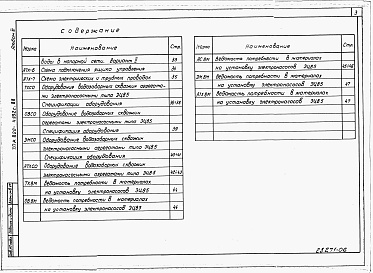 3
Содержание
Марка Наименование Стр.
воды в напорной сети. Вариант 2 33
АТХ-6 Схема подключения ящика управления 34
АТХ-7 Схема электрических и трубных проводок 35
ТХСО Оборудование водозаборных скважин агрегата-
ми электронасосными типа ЭЦВ5
Спецификации оборудования
ОВСО Оборудование водозаборных скважин
агрегатами электронасосными типа ЭЦВ5
Спецификация оборудования 39
ЭМСО Оборудование водозаборных скважин
агрегатами электронасосными типа ЭЦВ5
Спецификация оборудования
АТХСО Оборудование водозаборных скважин
электронасосными агрегатами типа ЭЦВ5
ТХВМ Ведомость потребности в материалах
на установку электронасосов ЭЦВ5 44
ОВВМ Ведомость потребности в материалах
на установку электронасосов ЭЦВ5
Марка Наименование Стр.
АСВМ Ведомость потребности в материалах
на установку электронасосов ЭЦВ5
ЭМВМ Ведомость потребности в материалах
на установку электронасосов ЭЦВ5 47
АТХВМ Ведомость потребности в материалах
на установку электронасосов ЭЦВ5 47
23271-06